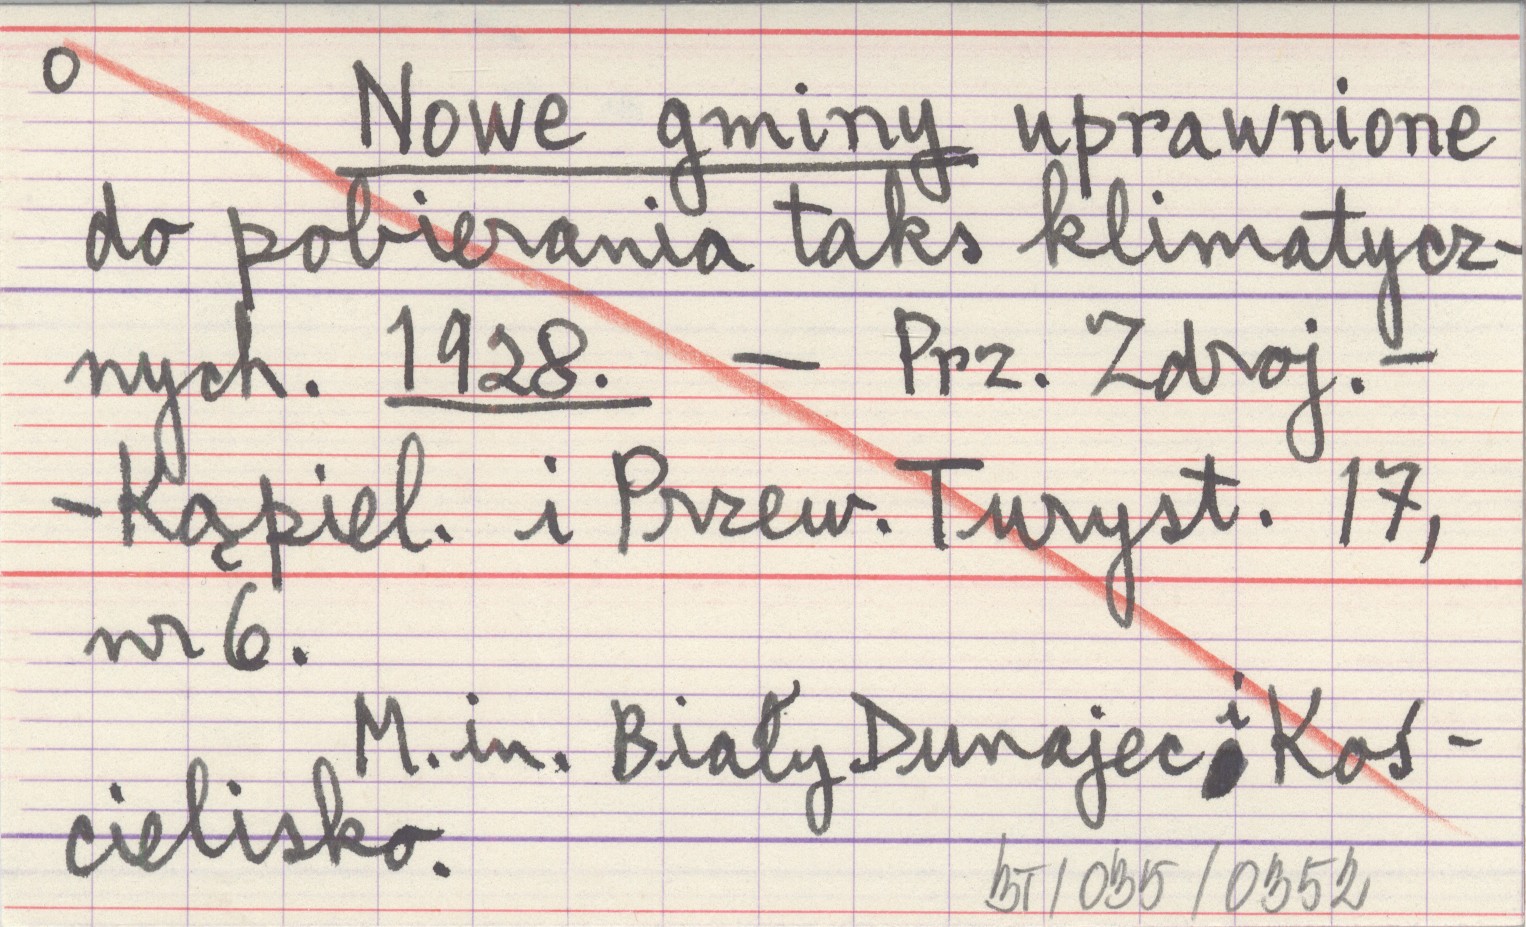 o
Nowe gminy uprawnione
do pobierania taks klimatycz-
nych. 1928. — Prz. Zdroj. -
- Kąpiel. i Przew. Turyst. 17,
nr 6.
M. in. Biały Dunajec i Koś-
cielisko.
BT/035/0352